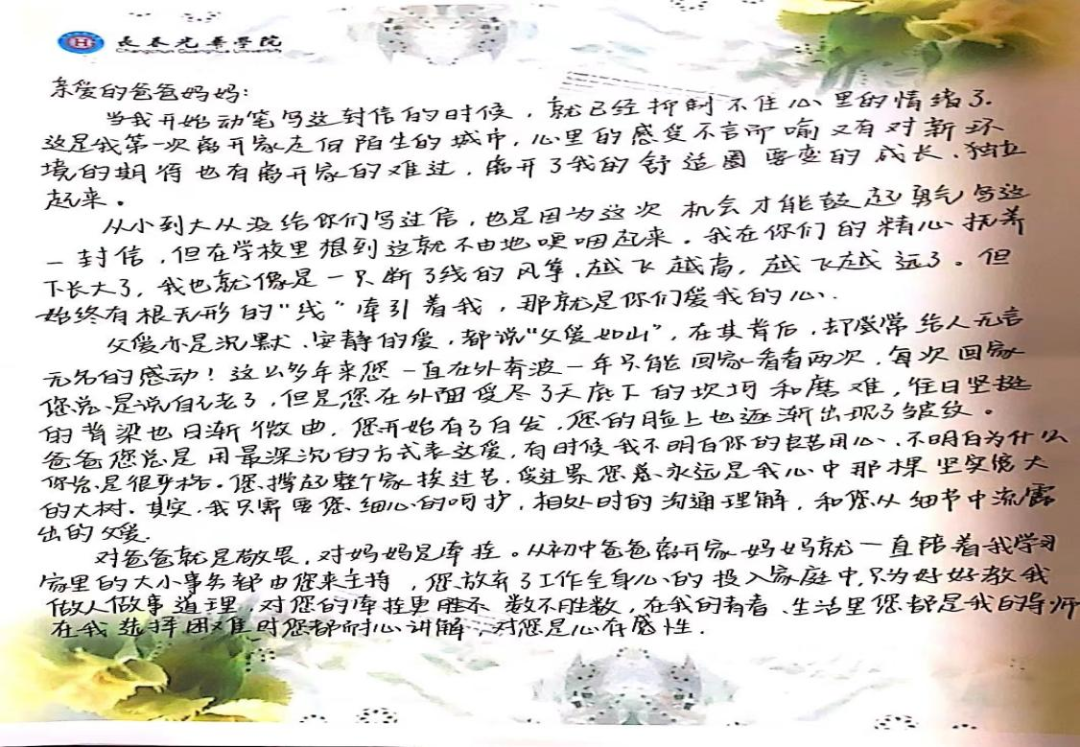 长春光华学院
亲爱的爸爸妈妈:
当我开始动笔写这封信的时候，就已经抑制不住心里的情绪了.
这是我第一次离开家走向陌生的城市，心里的感受不言而喻又有对新环
境的期待也有离开家的难过，离开了我的舒适圈要变的成长、独立
起来。
从小到大从没给你们写过信，也是因为这次机会才能鼓起勇气写这
一封信，但在学校里想到这就不由地哽咽起来。我在你们的精心抚养
下长大了，我也就像是一只断了线的风筝，越飞越高，越飞越远了。但
始终有根无形的"线"牵引着我，那就是你们爱我的心.
父爱亦是沉默、安静的爱，都说"父爱如山"，在其背后，却常常给人无言
无名的感动！这么多年来您一直在外奔波一年只能回家看看两次，每次回家
您总是说自己老了，但是您在外面受尽了天底下的坎坷和磨难，往日坚挺
的背梁也日渐微曲，您开始有了白发，您的脸上也逐渐出现了皱纹。
爸爸您总是用最深沉的方式表达爱，有时候我不明白你的良苦用心、不明白为什么
你总是很严格。您撑起整个家挨过苦，受过累您总永远是我心中那棵坚实伟大
的大树。其实，我只需要您细心的呵护，相处时的沟通理解，和您从细节中流露
出的父爱.
对爸爸就是敬畏，对妈妈是牵挂。从初中爸爸离开家妈妈就一直陪着我学习
家里的大小事务都由您来主持，您放弃了工作全身心的投入家庭中，只为好好教我
做人做事道理，对您的牵挂更胜不数不胜数，在我的青春、生活里您都是我的导师
在我选择困难时您都耐心讲解，对您是心存感性.